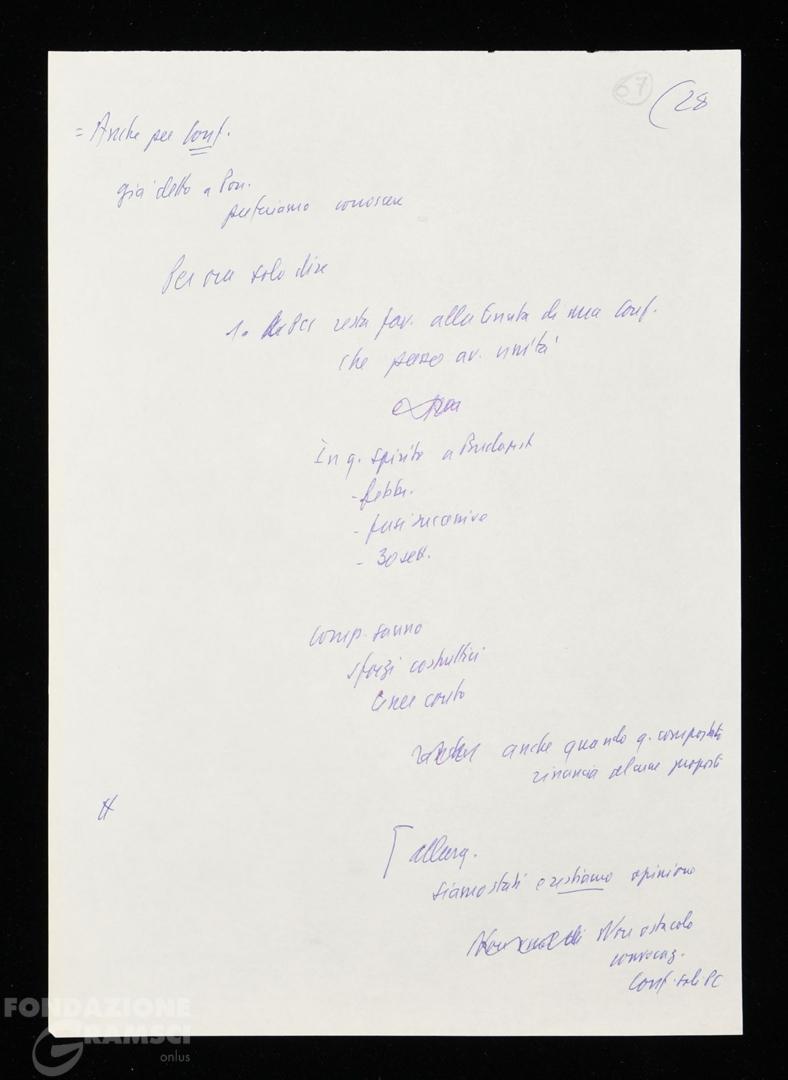 67
(28
= Anche per Conf.
già detto a Pon.
preferiamo conoscere
Per ora solo dire
1° PCI resta fav. alla tenuta di una Conf.
che passo av. unità
In q. spirito a Budapest
- febbr.
- fasi successive
- 30 sett.
Comp. sanno
sforzi costruttivi
tener conto
anche quando q. comportato
rinuncia alcune proposte
allarg.
siamo stati e restiamo opinione
Non ostacolo
convocaz.
Conf. soli PC
FONDAZIONE
GRAMSCI
onlus